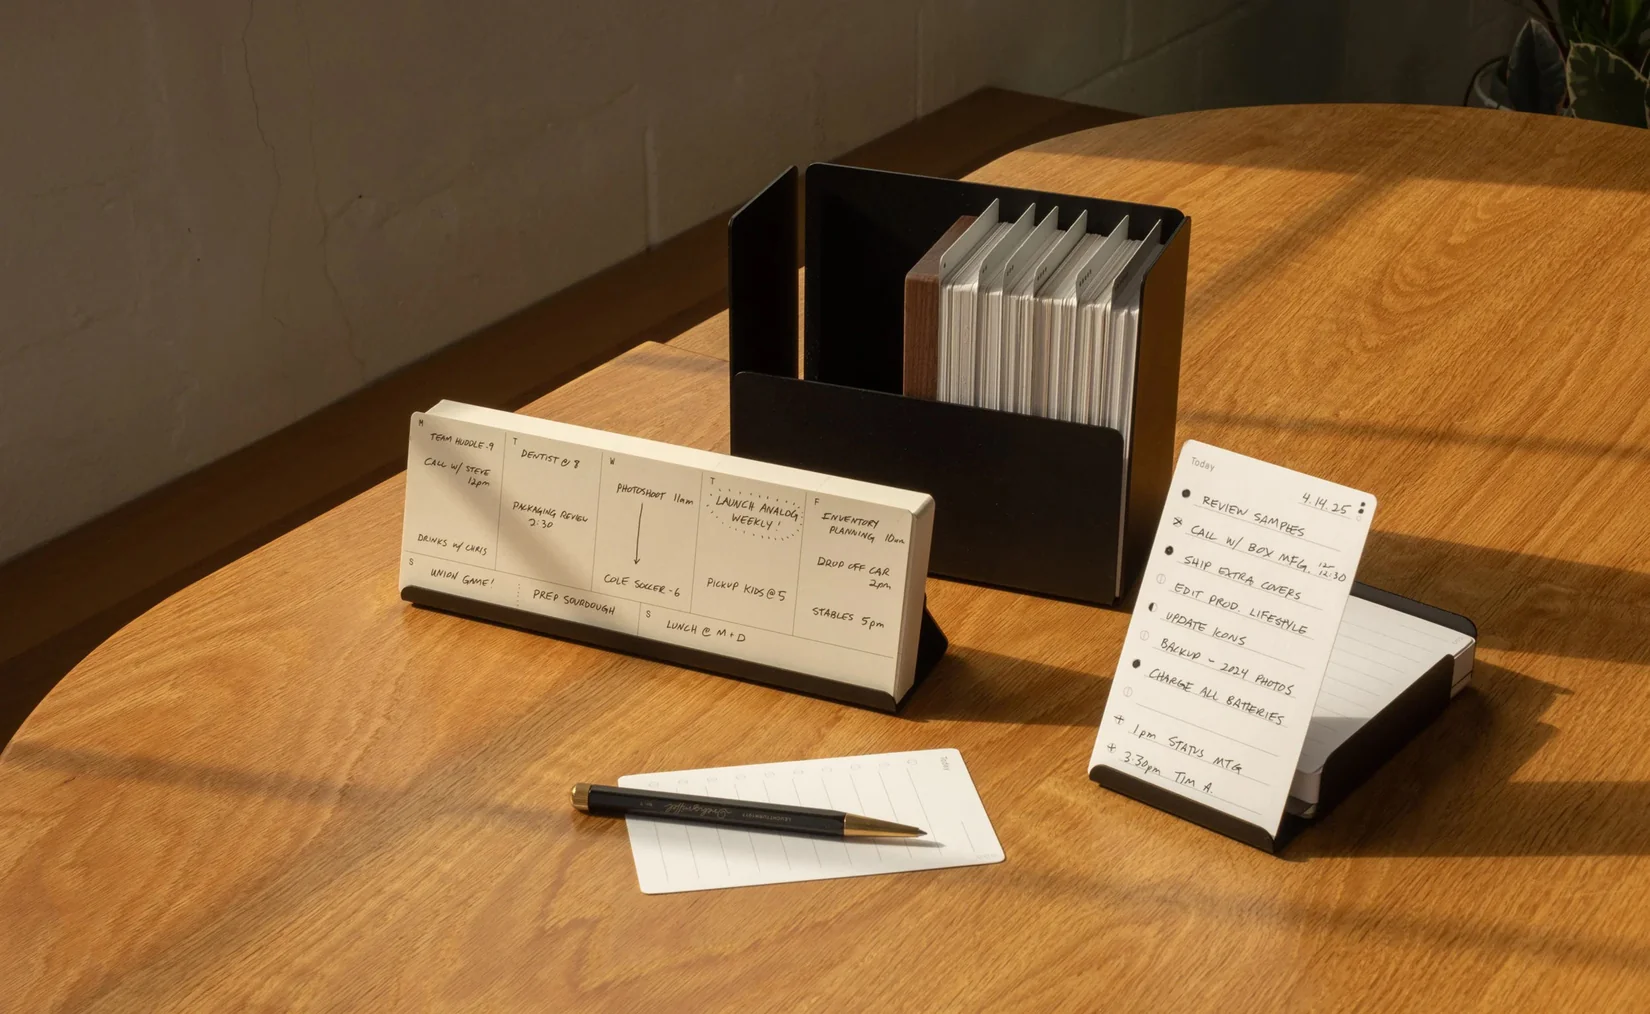 M
TEAM HUDDLE - 9
CALL W/ STEVE
12pm
DRINKS W/ CHRIS
T
DENTIST @ 8
PACKAGING REVIEW
2:30
W
PHOTOSHOOT 11am
COLE SOCCER - 6
T
LAUNCH ANALOG
WEEKLY!
PICKUP KIDS @ 5
F
INVENTORY
PLANNING 10am
DROP OFF CAR
2pm
STABLES 5pm
S
UNION GAME!
PREP SOURDOUGH
S
LUNCH @ M + D
Today
4.14.25
REVIEW SAMPLES
CALL W/ BOX MFG. 12-
12:30
SHIP EXTRA COVERS
EDIT PROD. LIFESTYLE
UPDATE ICONS
BACKUP - 2024 PHOTOS
CHARGE ALL BATTERIES
1pm STATUS MTG
3:30pm TIM A.
Today
LEUCHTTURM1917